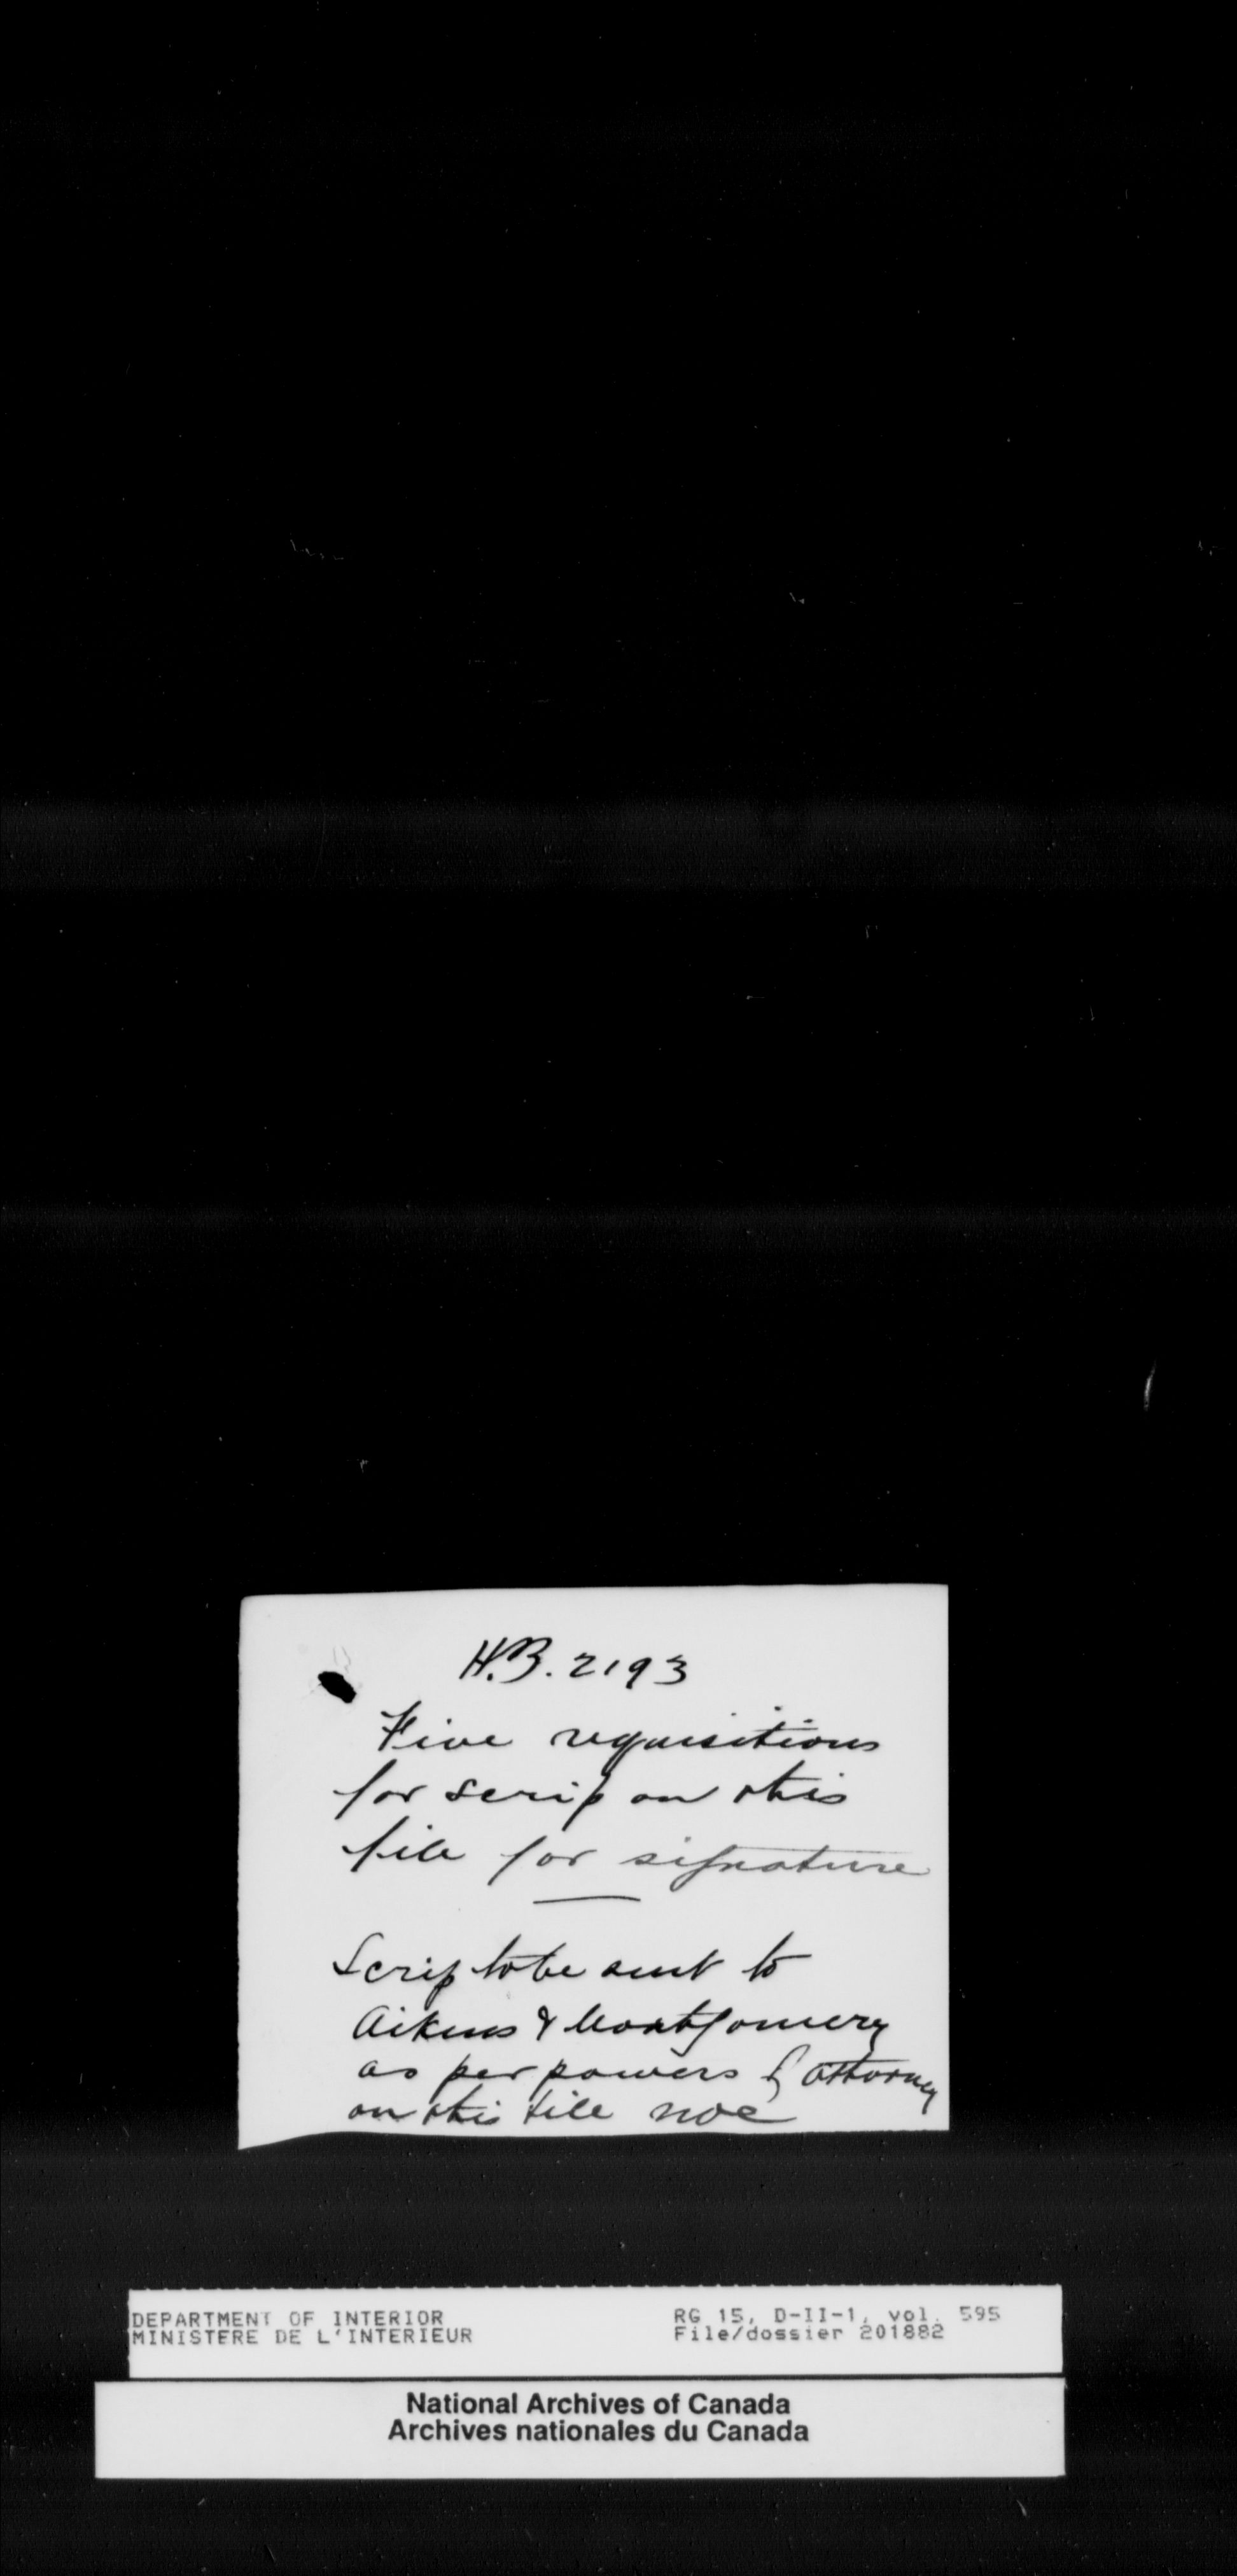 H.B. 2193
Five requisitions
for scrip on this
file for signature
Scrip to be sent to
Aikins & Montgomery
as per powers of attorney
on this file
DEPARTMENT OF INTERIOR
MINISTERE DE L'INTERIEUR
RG 15, D-II-1, vol. 595
File/dossier 201882
National Archives of Canada
Archives nationales du Canada